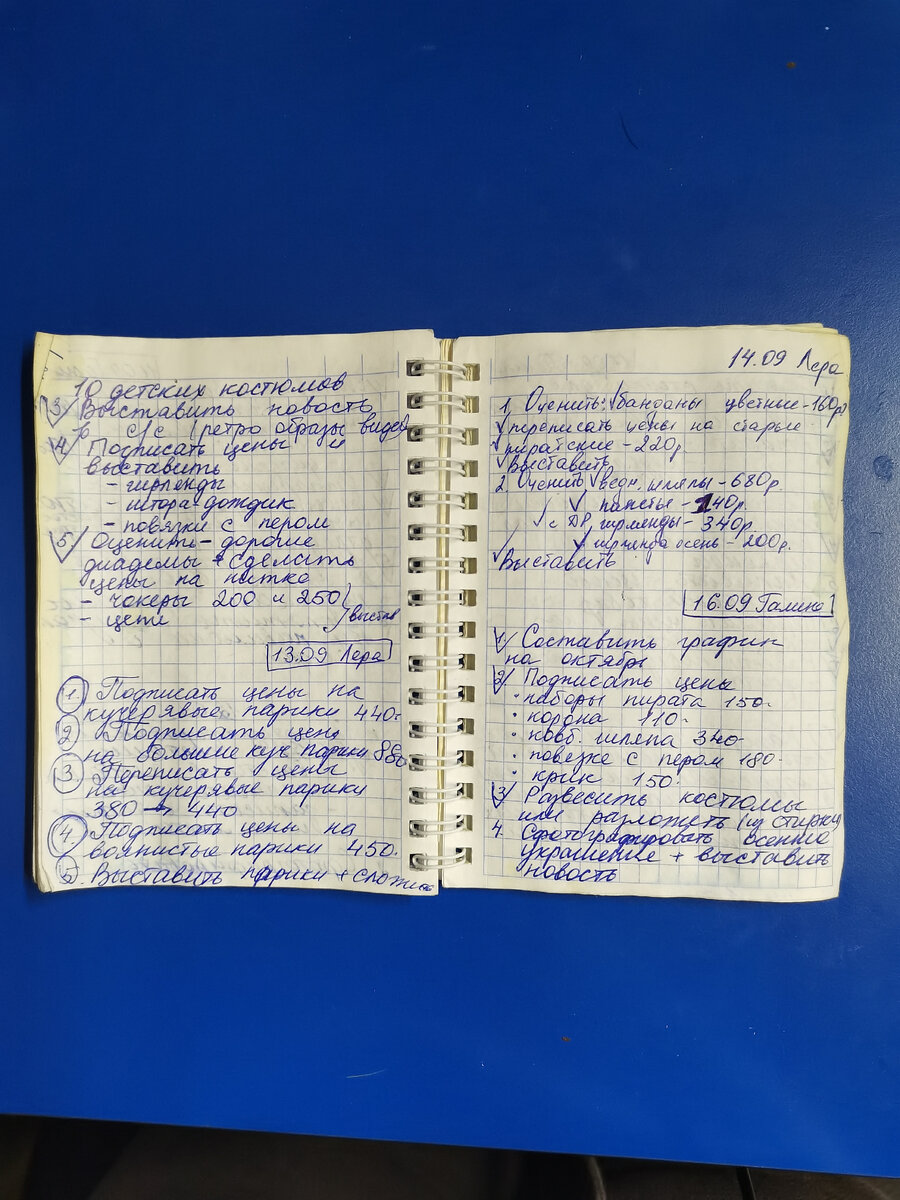 10 детских костюмов
3 Выставить новость
в с/с (ретро образы видео
4 Подписать цены и
выставить
- гирленды
- штора-дождик
- повязки с пером
5 Оценить - дорогие
диадемы + сделать
цены на нитке
- чокеры 200 и 250
- цепи } выстав
13.09 Лера
1 Подписать цены на
кучерявые парики 440.
2 Подписать цены
на большие куч парики 880
3 Переписать цены
на кучерявые парики
380 → 440
4. Подписать цены на
волнистые парики 450.
5. Выставить парики + сложить
14.09 Лера
1. Оценить: √ банданы цветные - 160р.
√ переписать цены на старые
√ пиратские - 220р.
√ Выставить
2. Оценить √ ведн. шляпы - 680р.
√ пакеты - 140р.
√ с ДР, гирленды - 340р.
√ гирленда осень - 200р.
√ Выставить
16.09 Галина
1 Составить график
на октябрь
2 Подписать цены
· наборы пирата 150.
· корона 110.
· ковб. шляпа 340.
· повязке с пером 180.
· крик 150.
3 Развесить костюмы
или разложить (из стирки
4. Сфотографировать осенние
украшение + выставить
новость